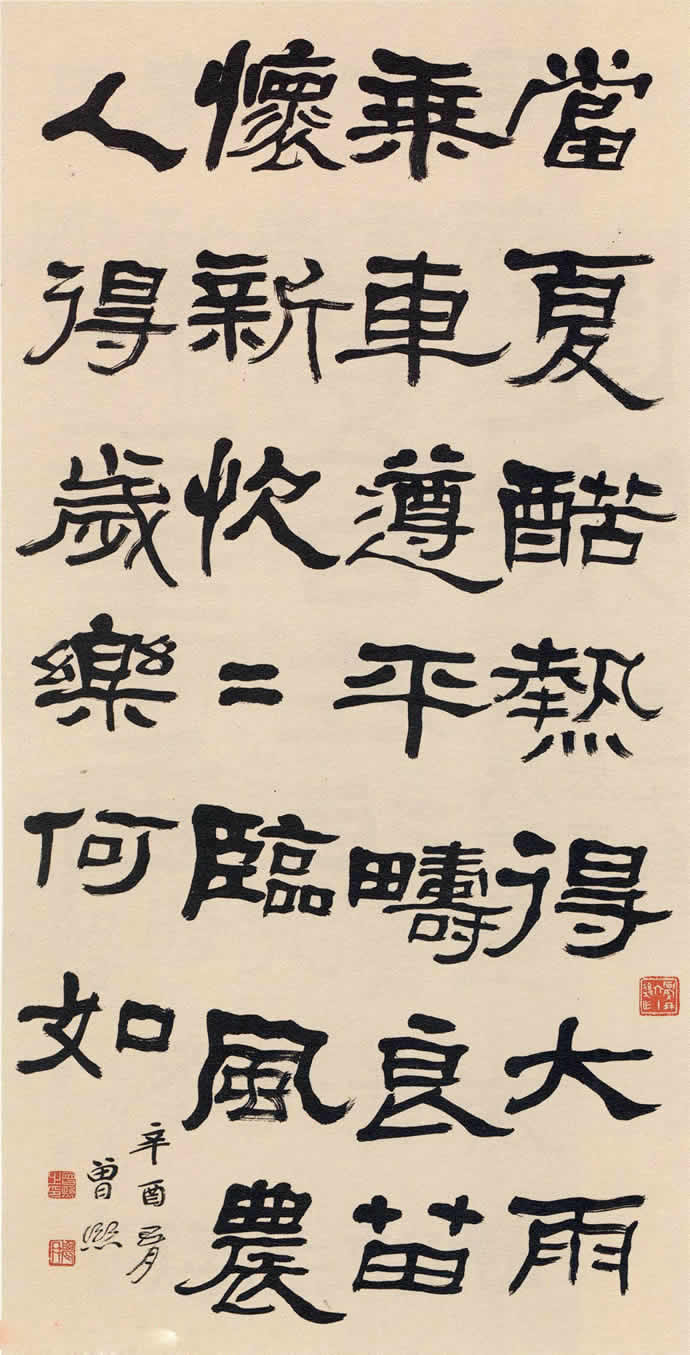 當夏酷熱得大雨
乘車遵平疇良苗
懷新忺=臨風農
人得歲樂何如
辛酉五月
曾熙